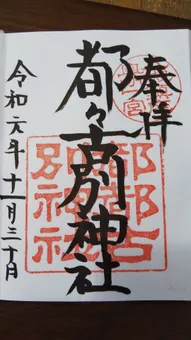 奉拝
都々古別神社
令和元年十一月三十日
都都古
別神社